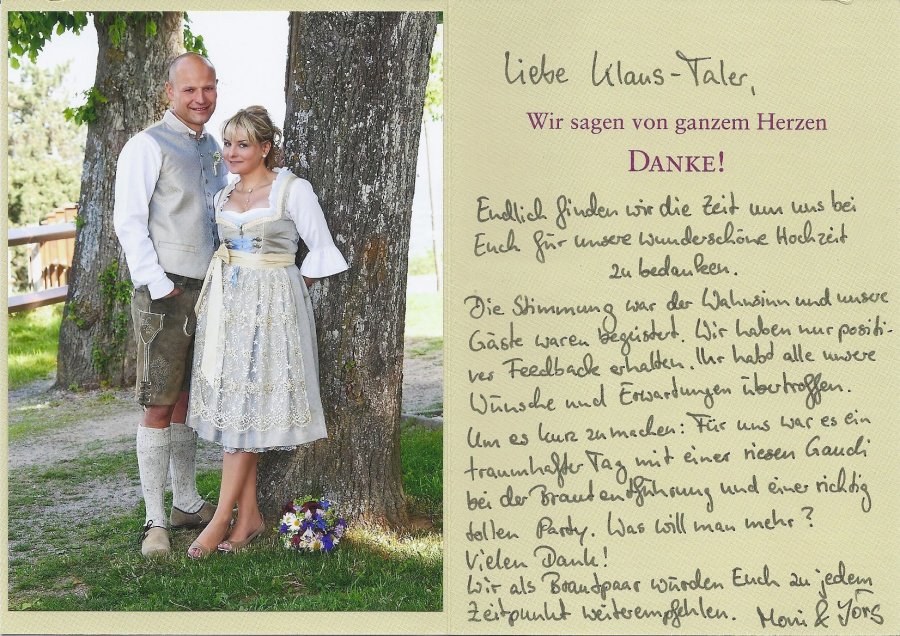 Liebe Klaus-Taler,
Wir sagen von ganzem Herzen
DANKE!
Endlich finden wir die Zeit um uns bei
Euch für unsere wunderschöne Hochzeit
zu bedanken.
Die Stimmung war der Wahnsinn und unsere
Gäste waren begeistert. Wir haben nur positi-
ves Feedback erhalten. Ihr habt alle unsere
Wünsche und Erwartungen übertroffen.
Um es kurz zu machen: Für uns war es ein
traumhafter Tag mit einer riesen Gaudi
bei der Brautentführung und einer richtig
tollen Party. Was will man mehr?
Vielen Dank!
Wir als Brautpaar würden Euch zu jedem
Zeitpunkt weiterempfehlen. Moni & Jörg